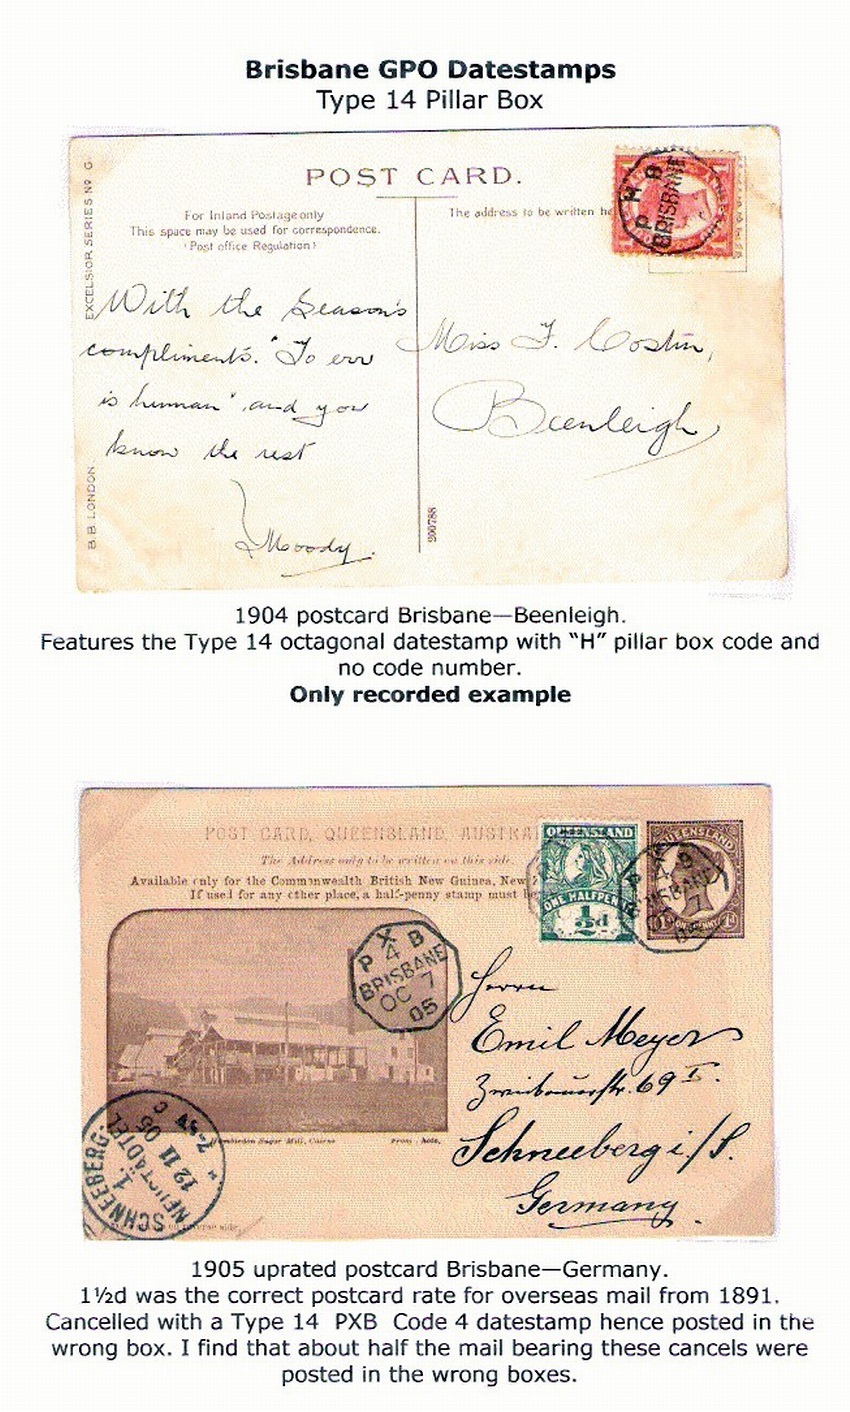 Brisbane GPO Datestamps
Type 14 Pillar Box
EXCELSIOR SERIES No G.
B.B. LONDON.
POST CARD.
For Inland Postage only
This space may be used for correspondence.
(Post office Regulation)
The address to be written he
P H B
BRISBANE
With the Season's
compliments. "To err
is human" and you
know the rest
Moody.
200788
Miss F. Costin,
Beenleigh
1904 postcard Brisbane—Beenleigh.
Features the Type 14 octagonal datestamp with "H" pillar box code and
no code number.
Only recorded example
POST CARD, QUEENSLAND, AUSTRA
The Address only to be written on this side.
Available only for the Commonwealth British New Guinea, New
If used for any other place, a half-penny stamp must be
QUEENSLAND
ONE HALFPENNY
½d
QUEENSLAND
1d ONE PENNY 1d
P X B
4
BRISBANE
OC 7
05
P X B
4
BRISBANE
OC 7
05
Hambledon Sugar Mill, Cairns
SCHNEEBERG.
NEUSTÄDTEL
1.
12 11 05
7-8V
c
Herrn
Emil Meyer
69 I.
Schneeberg i/S.
Germany.
reverse side.
1905 uprated postcard Brisbane—Germany.
1½d was the correct postcard rate for overseas mail from 1891.
Cancelled with a Type 14 PXB Code 4 datestamp hence posted in the
wrong box. I find that about half the mail bearing these cancels were
posted in the wrong boxes.